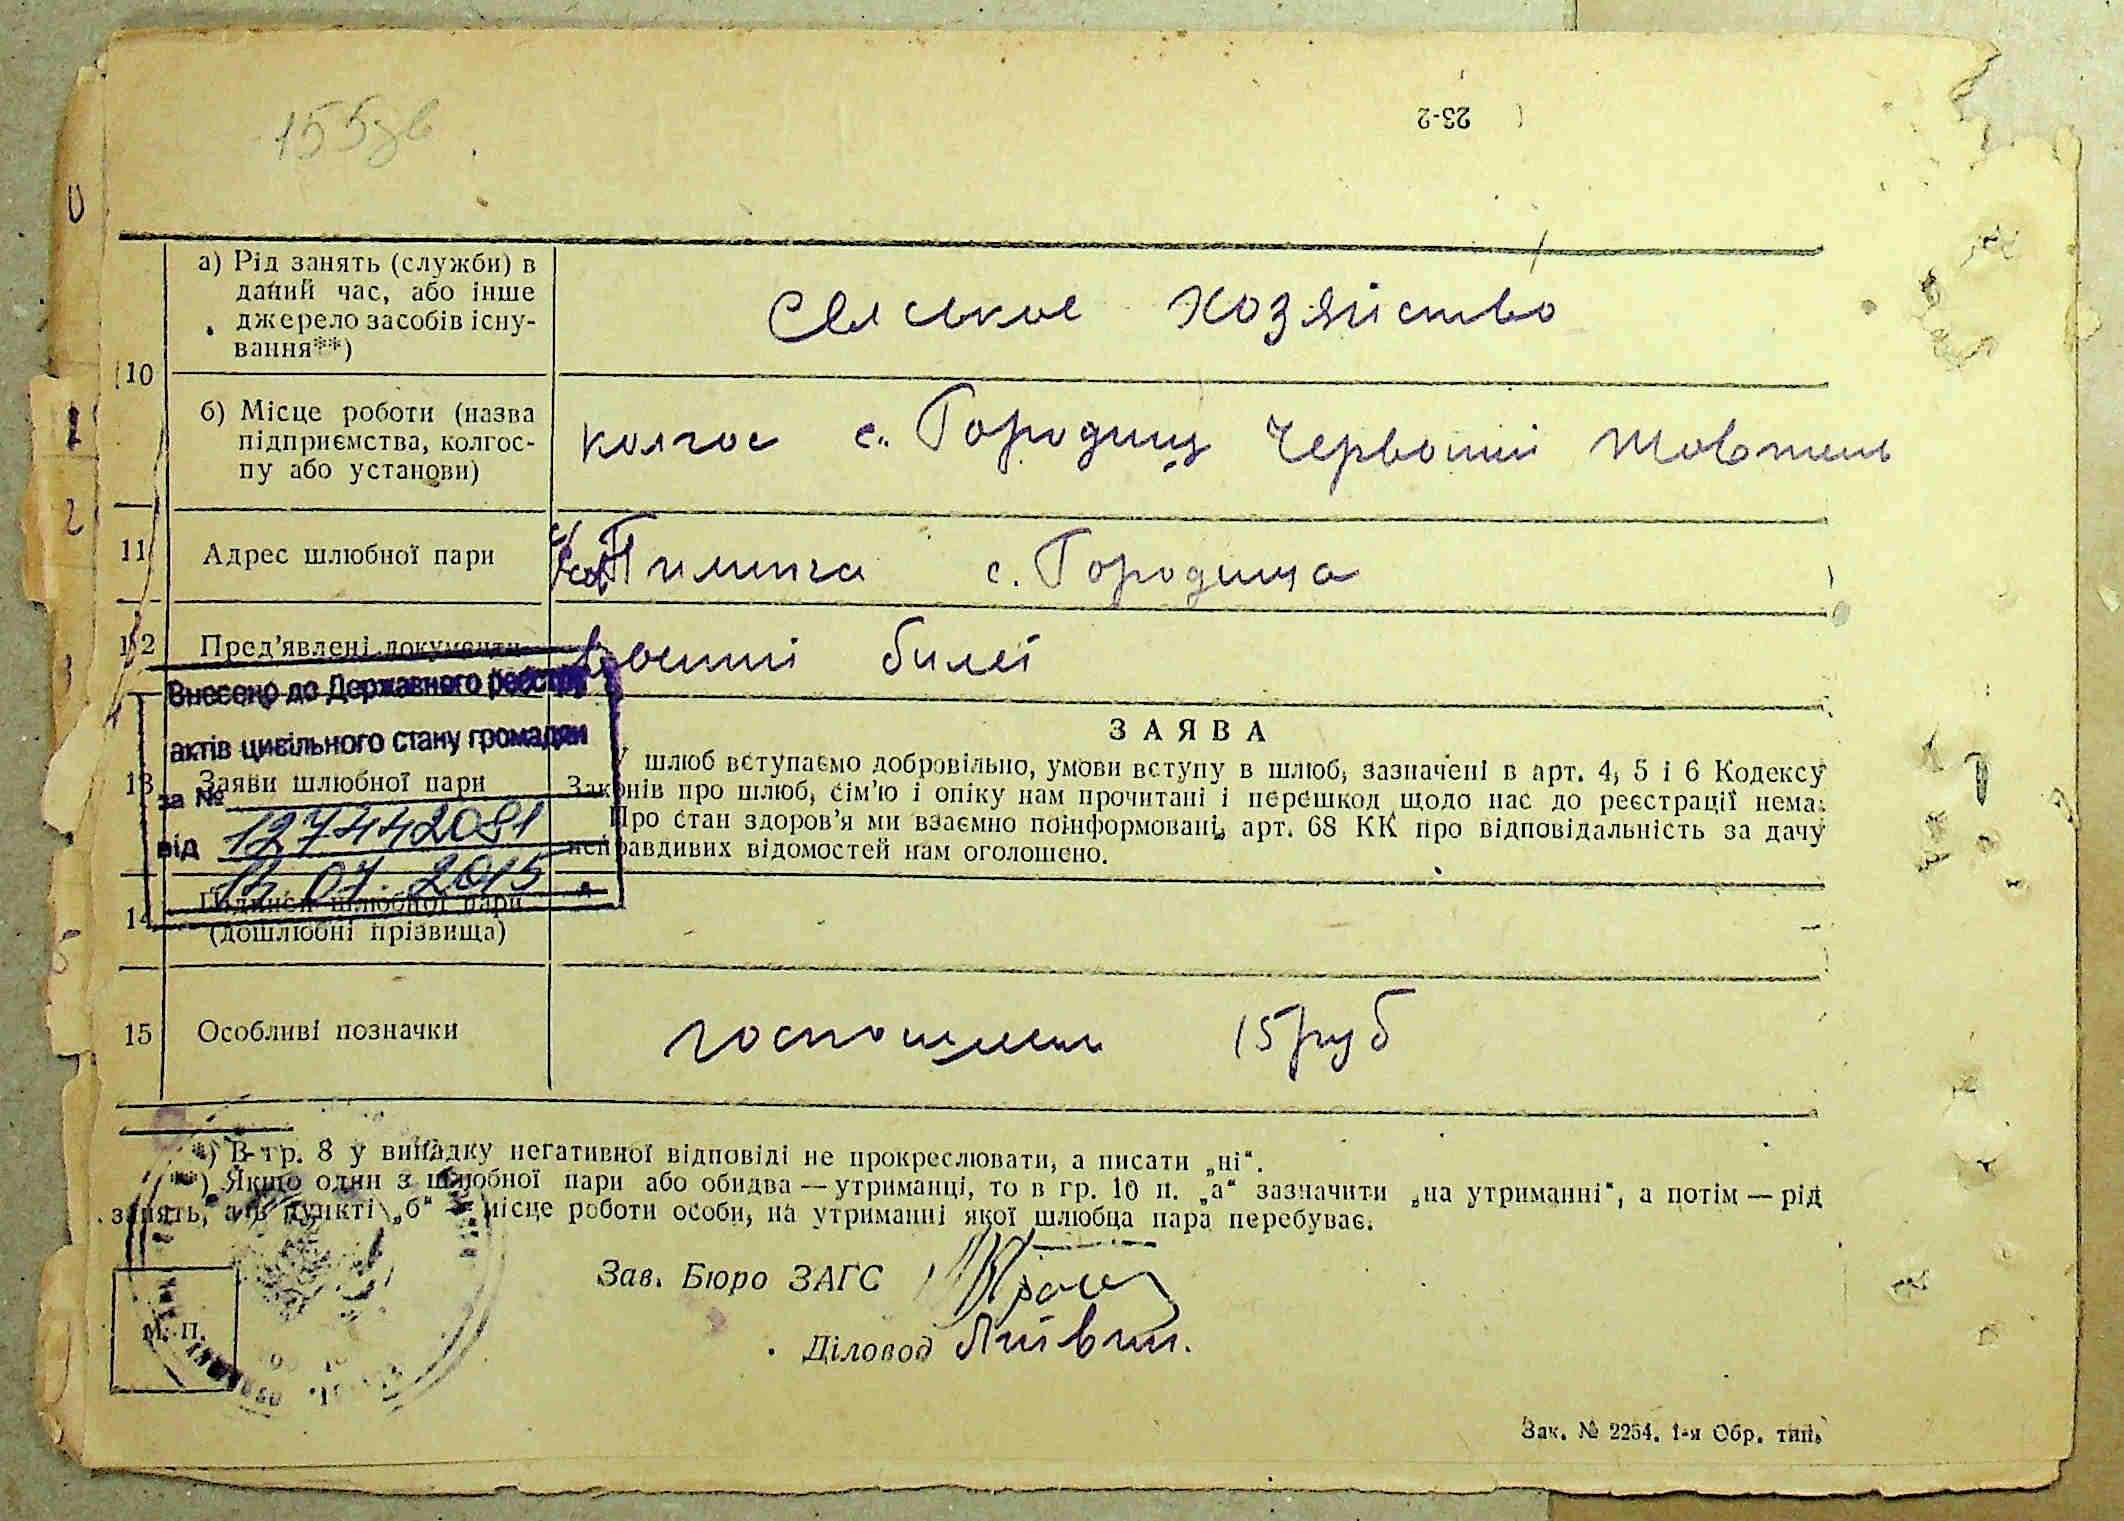 155зв
23-2
а) Рід занять (служби) в
даний час, або інше
джерело засобів існу-
вання**)
Селское хозяйство
10
б) Місце роботи (назва
підприємства, колгос-
пу або установи)
колгос с. Городищ Червоний Жовтень
11
Адрес шлюбної пари
с. Городища
12
Пред'явлені документи
воєнний билет
Внесено до Державного реєстру
актів цивільного стану громадян
за № 127442081
від 13.07.2015
13
Заяви шлюбної пари
ЗАЯВА
У шлюб вступаємо добровільно, умови вступу в шлюб, зазначені в арт. 4, 5 і 6 Кодексу
Законів про шлюб, сім'ю і опіку нам прочитані і перешкод щодо нас до реєстрації нема.
Про стан здоров'я ми взаємно поінформовані, арт. 68 КК про відповідальність за дачу
неправдивих відомостей нам оголошено.
14
Підписи шлюбної пари
(дошлюбні прізвища)
15
Особливі позначки
госпошлин 15 руб
*) В гр. 8 у випадку негативної відповіді не прокреслювати, а писати „ні“.
**) Якщо один з шлюбної пари або обидва — утриманці, то в гр. 10 п. „а“ зазначити „на утриманні“, а потім — рід
занять, а в пункті „б“ — місце роботи особи, на утриманні якої шлюбна пара перебуває.
Зав. Бюро ЗАГС
Діловод
М. П.
Зак. № 2254. 1-я Обр. тип.